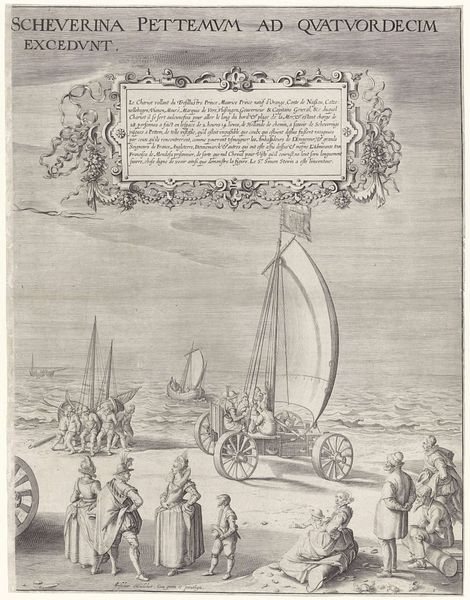 SCHEVERINA PETTEMVM AD QVATVORDECIM
EXCEDVNT.
Le Chariot vollant du Tresillustre Prince, Maurice Prince naif d'Orange, Conte de Nassau, Catze
nellebogen, Vianen, Meurs, Marquis de Vere, Flissingen, Gouverneur & Capitaine General, &c. duquel
Chariot il se sert
pour aller le long du bord & plage de la Mer, & estant chargé de
personnes a faict en l'espace de 2 heures 14 lieues, de Hollande de chemin, a scavoir de Scheveringe
jusques a Pettem, de telle vistesse, qu'il estoit impossible que ceulx qui estoient dessus fussent recognus
par ceux qu'ils rencontreroient, comme pourront tesmoigner les Ambassadeurs de l'Empereur, & grands
Seigneurs de France, Angleterre, Dennemarck & d'autres qui ont esté assis dessus, & mesme l'Admirante Don
Francisco de Mendosa prisonnier, de sorte que nul Cheval pour
qu'il courust ne leut sceu longuement
suivre, chose digne de veoir ainsi que demonstre la figure. Le Sr. Simon Stevin a esté l'inventeur.